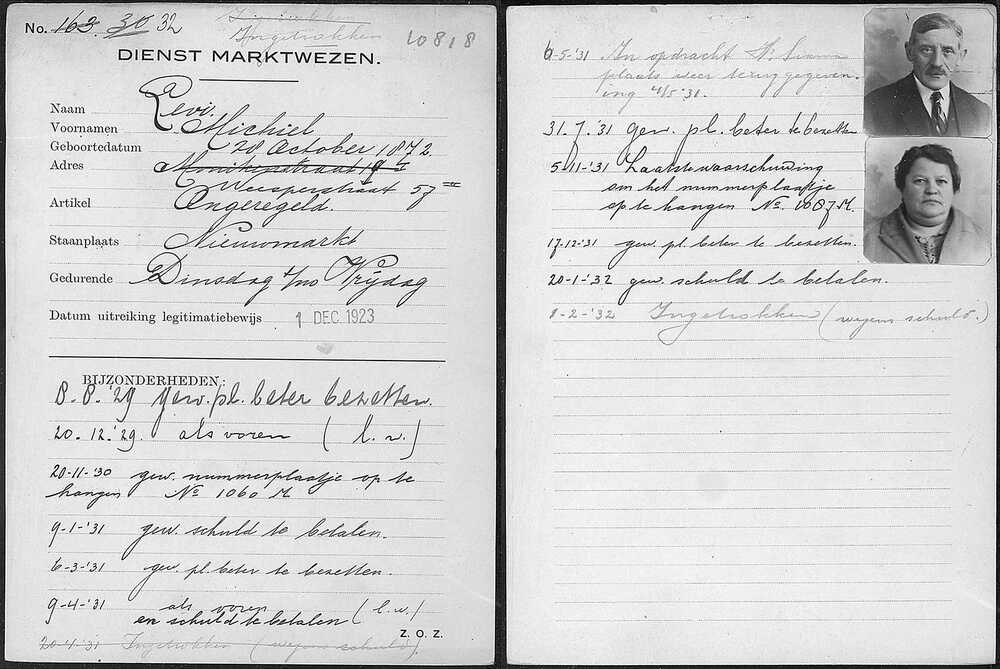 No. 163. 30 32
Ingetrokken
Ingetrokken
10818
DIENST MARKTWEZEN.
Naam Levi.
Voornamen Michiel
Geboortedatum 28 October 1872.
Adres Monikenstraat
Weesperstraat 57 III
Artikel Ongeregeld.
Staanplaats Nieuwmarkt
Gedurende Dinsdag t/m Vrijdag
Datum uitreiking legitimatiebewijs 1 DEC. 1923
BIJZONDERHEDEN:
8-8-'29 gew. pl. beter bezetten.
20.12.'29. als voren (l.w.)
20-11-'30 gew. nummerplaatje op te
hangen No 1060 M
9-1-'31 gew. schuld te betalen.
6-3-'31 gew. pl. beter te bezetten.
9-4-'31 als voren (l.w.)
en schuld te betalen
Z. O. Z.
20-4-'31 Ingetrokken (wegens schuld).
6-5-'31 In opdracht
plaats weer teruggegeven.
ing 4/5 '31.
31.7.'31 gew. pl. beter te bezetten
5-11-'31 Laatste waarschuwing
om het nummerplaatje
op te hangen No. 1007 M.
17-12-'31 gew. pl. beter te bezetten.
20-1-'32 gew. schuld te betalen.
8-2-'32 Ingetrokken (wegens schuld.)